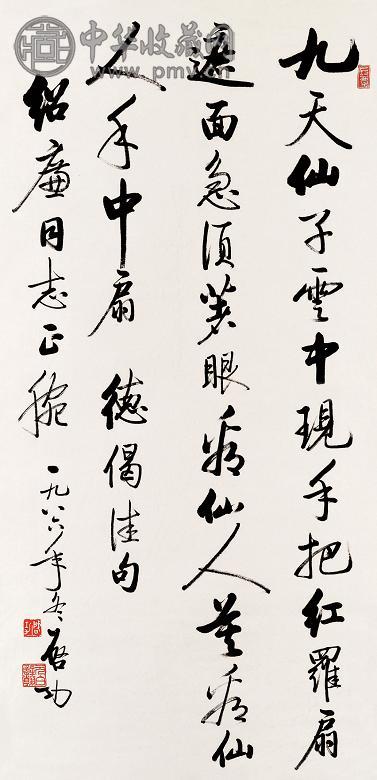 中华收藏网
www.pmv.cn
九天仙子雲中現手把紅羅扇
遮面急須著眼看仙人莫看仙
人手中扇 德偈佳句
紹廉同志正腕 一九八六年冬 啓功